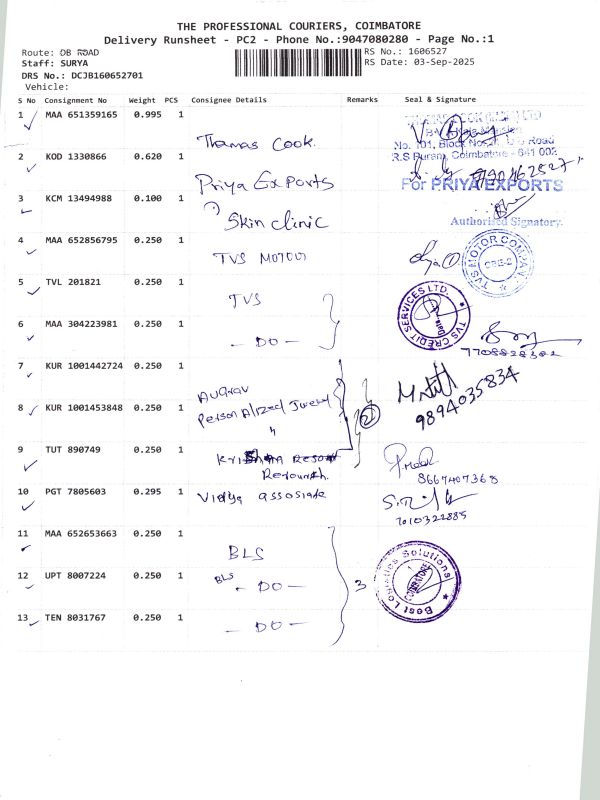 THE PROFESSIONAL COURIERS, COIMBATORE
Delivery Runsheet - PC2 - Phone No.:9047080280 - Page No.:1
Route: DB ROAD
RS No.: 1606527
Staff: SURYA
RS Date: 03-Sep-2025
DRS No.: DCJB160652701
Vehicle:
S No Consignment No Weight PCS Consignee Details Remarks Seal & Signature
1 MAA 651359165 0.995 1 Thomas Cook.
No. 101, Block No. Road
R.S Puram, Coimbatore - 641 002
2 KOD 1330866 0.620 1 Priya Exports
For PRIYA EXPORTS
3 KCM 13494988 0.100 1 Skin clinic
Authorised Signatory.
4 MAA 652856795 0.250 1 TVS MOTOR
TVS MOTOR COMPANY
CBE-2
5 TVL 201821 0.250 1 TVS
TVS CREDIT SERVICES LTD.
6 MAA 304223981 0.250 1 - DO -
7708828382
7 KUR 1001442724 0.250 1
8 KUR 1001453848 0.250 1 2
9894035834
9 TUT 890749 0.250 1
8667407368
10 PGT 7805603 0.295 1 Vidya assosiate
7010322885
11 MAA 652653663 0.250 1 BLS
12 UPT 8007224 0.250 1 BLS - DO - 3
Best Logistics Solutions
COIMBATORE
13 TEN 8031767 0.250 1 - DO -